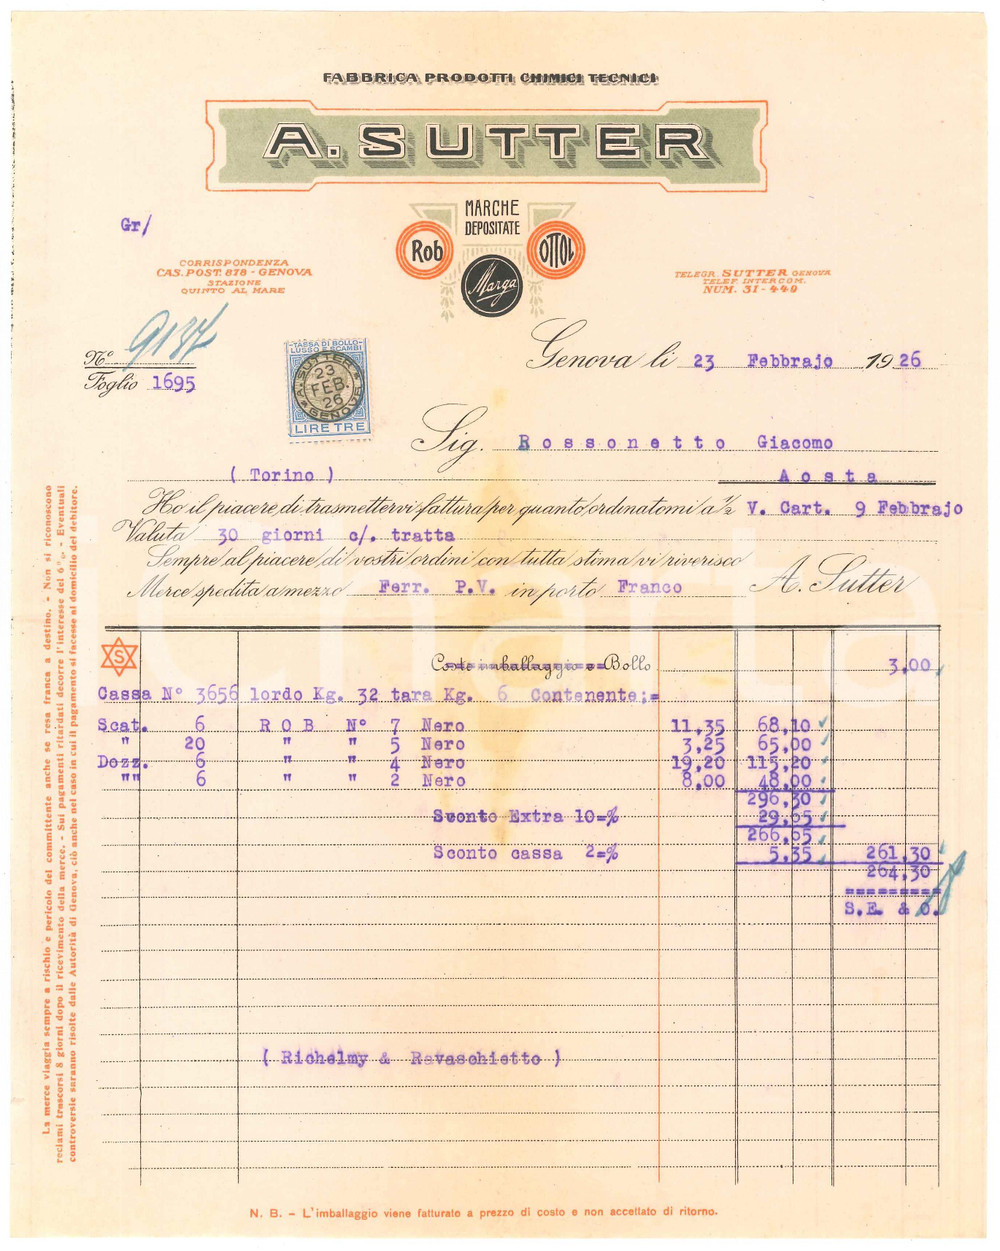 FABBRICA PRODOTTI CHIMICI TECNICI
A. SUTTER
MARCHE
DEPOSITATE
Rob
OTTOL
Marga
Gr/
CORRISPONDENZA
CAS. POST. 878 - GENOVA
STAZIONE
QUINTO AL MARE
TELEGR. SUTTER GENOVA
TELEF. INTERCOM.
NUM. 31-440
Nº 9137
Foglio 1695
TASSA DI BOLLO
LUSSO E SCAMBI
A. SUTTER
23
FEB.
26
GENOVA
LIRE TRE
Genova li 23 Febbrajo 1926
Sig. Rossonetto Giacomo
( Torino ) Aosta
Ho il piacere di trasmettervi fattura per quanto ordinatomi a 1/2 V. Cart. 9 Febbrajo
Valuta 30 giorni c/. tratta
Sempre al piacere di vostri ordini con tutta stima vi riverisco
Merce spedita a mezzo Ferr. P.V. in porto Franco A. Sutter
S
Costo imballaggio e Bollo 3,00
Cassa Nº 3656 lordo Kg. 32 tara Kg. 6 Contenente;=
Scat. 6 R O B Nº 7 Nero 11,35 68,10
" 20 " " 5 Nero 3,25 65,00
Dozz. 6 " " 4 Nero 19,20 115,20
"" 6 " " 2 Nero 8,00 48,00
296,30
Sconto Extra 10=% 29,65
266,65
Sconto cassa 2=% 5,35 261,30
264,30
==========
S.E. & O.
( Richelmy & Ravaschietto )
La merce viaggia sempre a rischio e pericolo del committente anche se resa franca a destino. - Non si riconoscono
reclami trascorsi 8 giorni dopo il ricevimento della merce. - Sui pagamenti ritardati decorre l'interesse del 6%. - Eventuali
controversie saranno risolte dalle Autorità di Genova, ciò anche nel caso in cui il pagamento si facesse al domicilio del debitore.
N. B. - L'imballaggio viene fatturato a prezzo di costo e non accettato di ritorno.